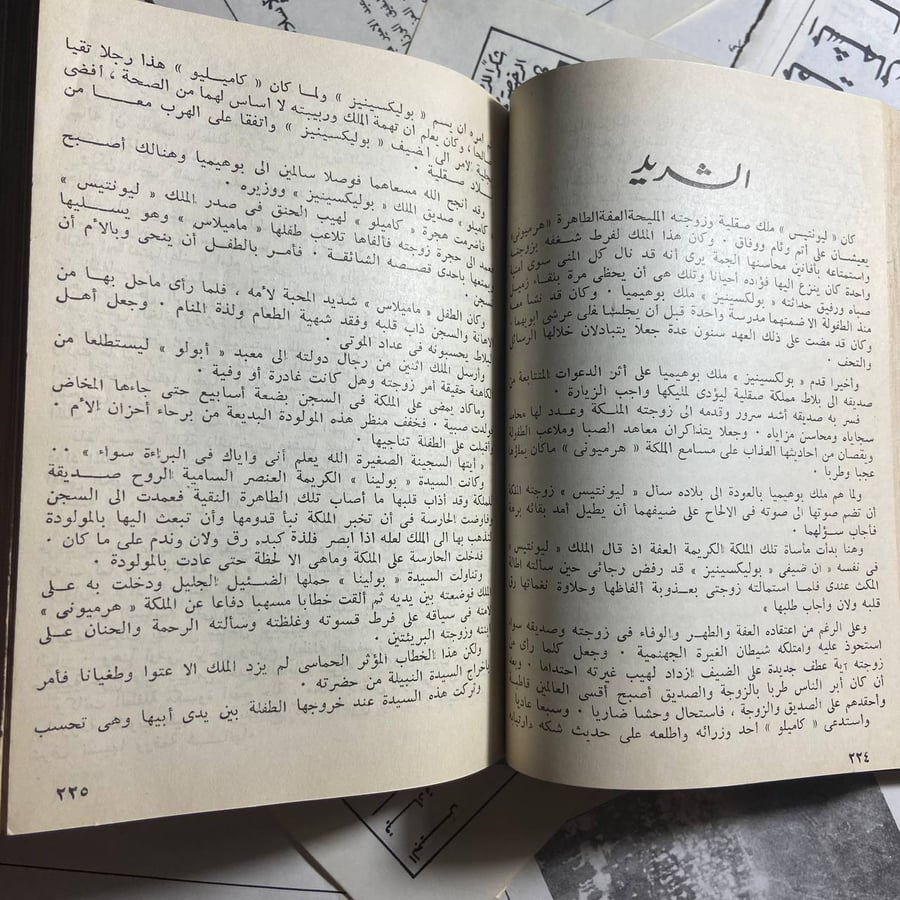 الشريد
كان « ليونتيس » ملك صقلية وزوجته المليحة العفة الطاهرة « هرميونى »
يعيشان على أتم وئام ووفاق ٠ وكان هذا الملك لفرط شغفه بزوجته
واستمتاعه بأفانين محاسنها الجمة يرى أنه قد نال كل المنى سوى أمنية
واحدة كان ينزع اليها فؤاده أحيانا وتلك هى أن يحظى مرة بلقاء زميل
صباه ورفيق حداثته « بولكسينيز » ملك بوهيميا ٠ وكان قد نشأ معه
منذ الطفولة الاضمتهما مدرسة واحدة قبل أن يجلسا على عرشى أبويهما ٠
وكان قد مضت على ذلك العهد سنون عدة جعلا يتبادلان خلالها الرسائل
والتحف ٠
واخيرا قدم « بولكسينيز » ملك بوهيميا على أثر الدعوات المتتابعة من
صديقه الى بلاط مملكة صقلية ليؤدى لمليكها واجب الزيارة ٠
فسر به صديقه أشد سرور وقدمه الى زوجته الملكة وعدد لها محاسن
سجاياه ومحاسن مزاياه ٠ وجعلا يتذاكران معاهد الصبا وملاعب الطفولة
ويقصان من أحاديثها العذاب على مسامع الملكة « هرميونى » ماكان يملؤها
عجبا وطربا ٠
ولما هم ملك بوهيميا بالعودة الى بلاده سأل « ليونتيس » زوجته الملكة
أن تضم صوتها الى صوته فى الالحاح على ضيفهما أن يطيل أمد بقائه برهة
فأجاب سؤلهما ٠
وهنا بدأت مأساة تلك الملكة الكريمة العفة اذ قال الملك « ليونتيس »
فى نفسه « ان ضيفى « بوليكسينيز » قد رفض رجائى حين سألته اطالة
المكث عندى فلما استمالته زوجتى بعذوبة ألفاظها وحلاوة نغماتها رق
قلبه ولان وأجاب طلبها »
وعلى الرغم من اعتقاده العفة والطهر والوفاء فى زوجته وصديقه سواء
استحوذ عليه وامتلكه شيطان الغيرة الجهنمية ٠ وجعل كلما رأى من
زوجته آية عطف جديدة على الضيف ازداد لهيب غيرته احتداما ٠ وبعد
أن كان أبر الناس طربا بالزوجة والصديق أصبح أقسى العالمين قاطبة
وأحقدهم على الصديق والزوجة ، فاستحال وحشا ضاريا ٠ وسبعا عاديا ٠
واستدعى « كاميلو » أحد وزرائه واطلعه على حديث شكه وارتيابه
٢٢٤
امره ان يسم « بوليكسينيز » ولما كان « كاميليو » هذا رجلا تقيا
صالحا ، وكان يعلم ان تهمة الملك وريبته لا اساس لهما من الصحة ، أفضى
بجلية الامر الى الضيف « بوليكسينيز » واتفقا على الهرب معا من
بلاد صقلية ٠
وقد انجح الله مسعاهما فوصلا سالمين الى بوهيميا وهنالك أصبح
« كاميلو » صديق الملك « بوليكسينيز » ووزيره ٠
فأضرمت هجرة « كاميلو » لهيب الحنق فى صدر الملك « ليونتيس »
فعمد الى حجرة زوجته فألفاها تلاعب طفلها « ماميلاس » وهو يسليها
ويمتعها باحدى قصصه الشائقة ٠ فأمر بالطفل أن ينحى وبالأم أن
تسجن ٠
وكان الطفل « ماميلاس » شديد المحبة لأمه ، فلما رأى ماحل بها من
الاهانة والسجن ذاب قلبه وفقد شهية الطعام ولذة المنام ٠ وجعل أهل
البلاط يحسبونه فى عداد الموتى ٠
وأرسل الملك اثنين من رجال دولته الى معبد « أبولو » ليستطلعا من
الكاهنة حقيقة أمر زوجته وهل كانت غادرة أو وفية ٠
وماكاد يمضى على الملكة فى السجن بضعة أسابيع حتى جاءها المخاض
فولدت صبية ٠ فخفف منظر هذه المولودة البديعة من برحاء أحزان الأم ٠
وأقبلت على الطفلة تناجيها ٠
« أيتها السجينة الصغيرة الله يعلم أنى واياك فى البراءة سواء » ٠٠
وكانت السيدة « بولينا » الكريمة العنصر السامية الروح صديقة
للملكة وقد أذاب قلبها ما أصاب تلك الطاهرة النقية فعمدت الى السجن
وفاوضت الحارسة فى أن تخبر الملكة نبأ قدومها وأن تبعث اليها بالمولودة
لتذهب بها الى الملك لعله اذا أبصر فلذة كبده رق ولان وندم على ما كان ٠
فدخلت الحارسة على الملكة وماهى الا لحظة حتى عادت بالمولودة ٠
وتناولت السيدة « بولينا » حملها الضئيل الجليل ودخلت به على
الملك فوضعته بين يديه ثم ألقت خطابا مسهبا دفاعا عن الملكة « هرميونى »
لامته فى سياقه على فرط قسوته وغلظته وسألته الرحمة والحنان على
ابنته وزوجته البريئتين ٠
ولكن هذا الخطاب المؤثر الحماسى لم يزد الملك الا عتوا وطغيانا فأمر
باخراج السيدة النبيلة من حضرته ٠
وتركت هذه السيدة عند خروجها الطفلة بين يدى أبيها وهى تحسب
٢٢٥